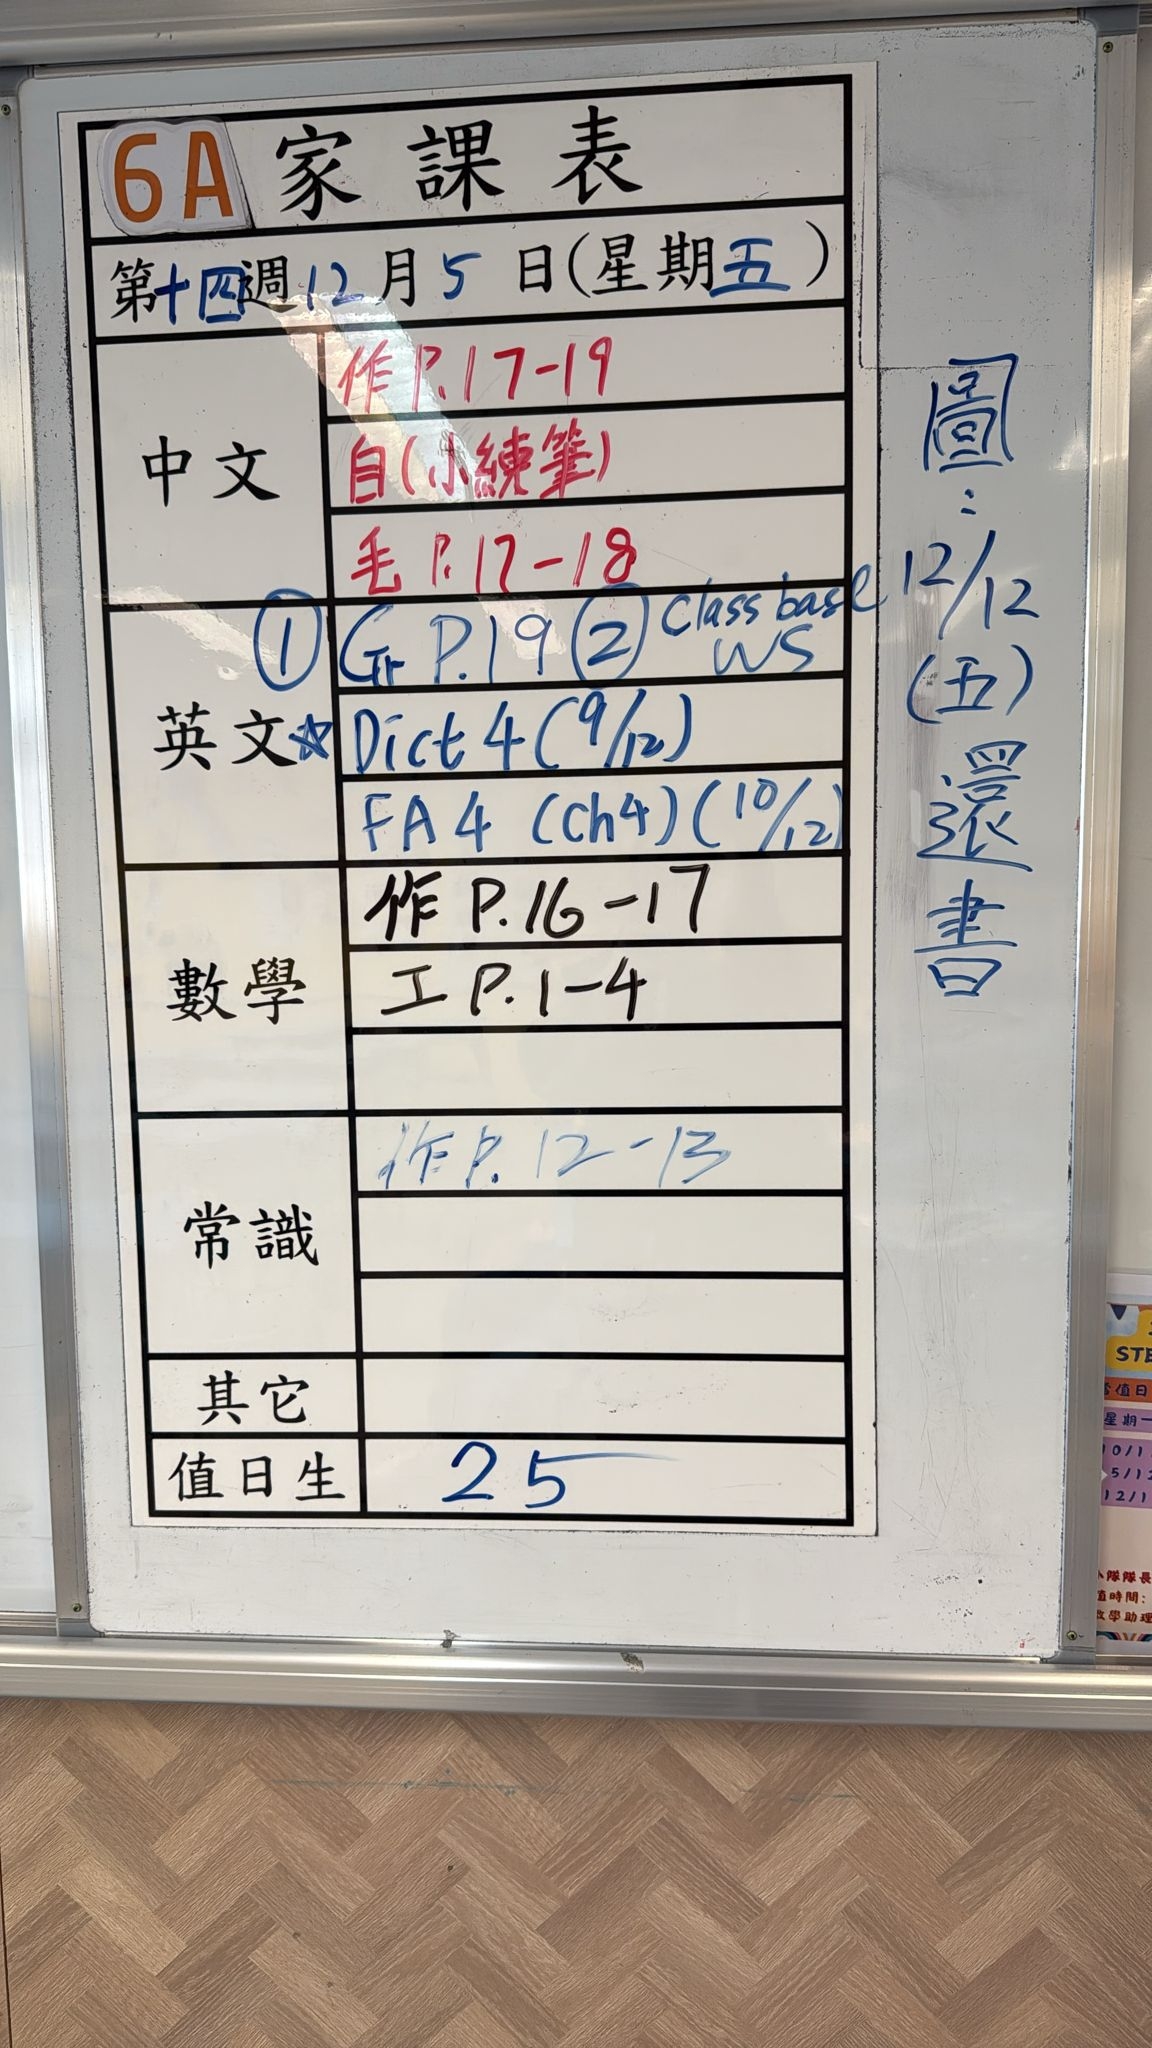 6A 家課表
第十四週12月5日(星期五)
中文
作P.17-19
自(小練筆)
毛 P.17-18
英文☆
① Gr P.19 ② Class base WS
Dict 4 (9/12)
FA4 (Ch4) (10/12)
數學
作 P.16-17
工 P.1-4
常識
作P.12-13
其它
值日生
25
圖:
12/12
(五)
還
書
STE
值日
星期一
小隊隊長
值時間:
教學助理